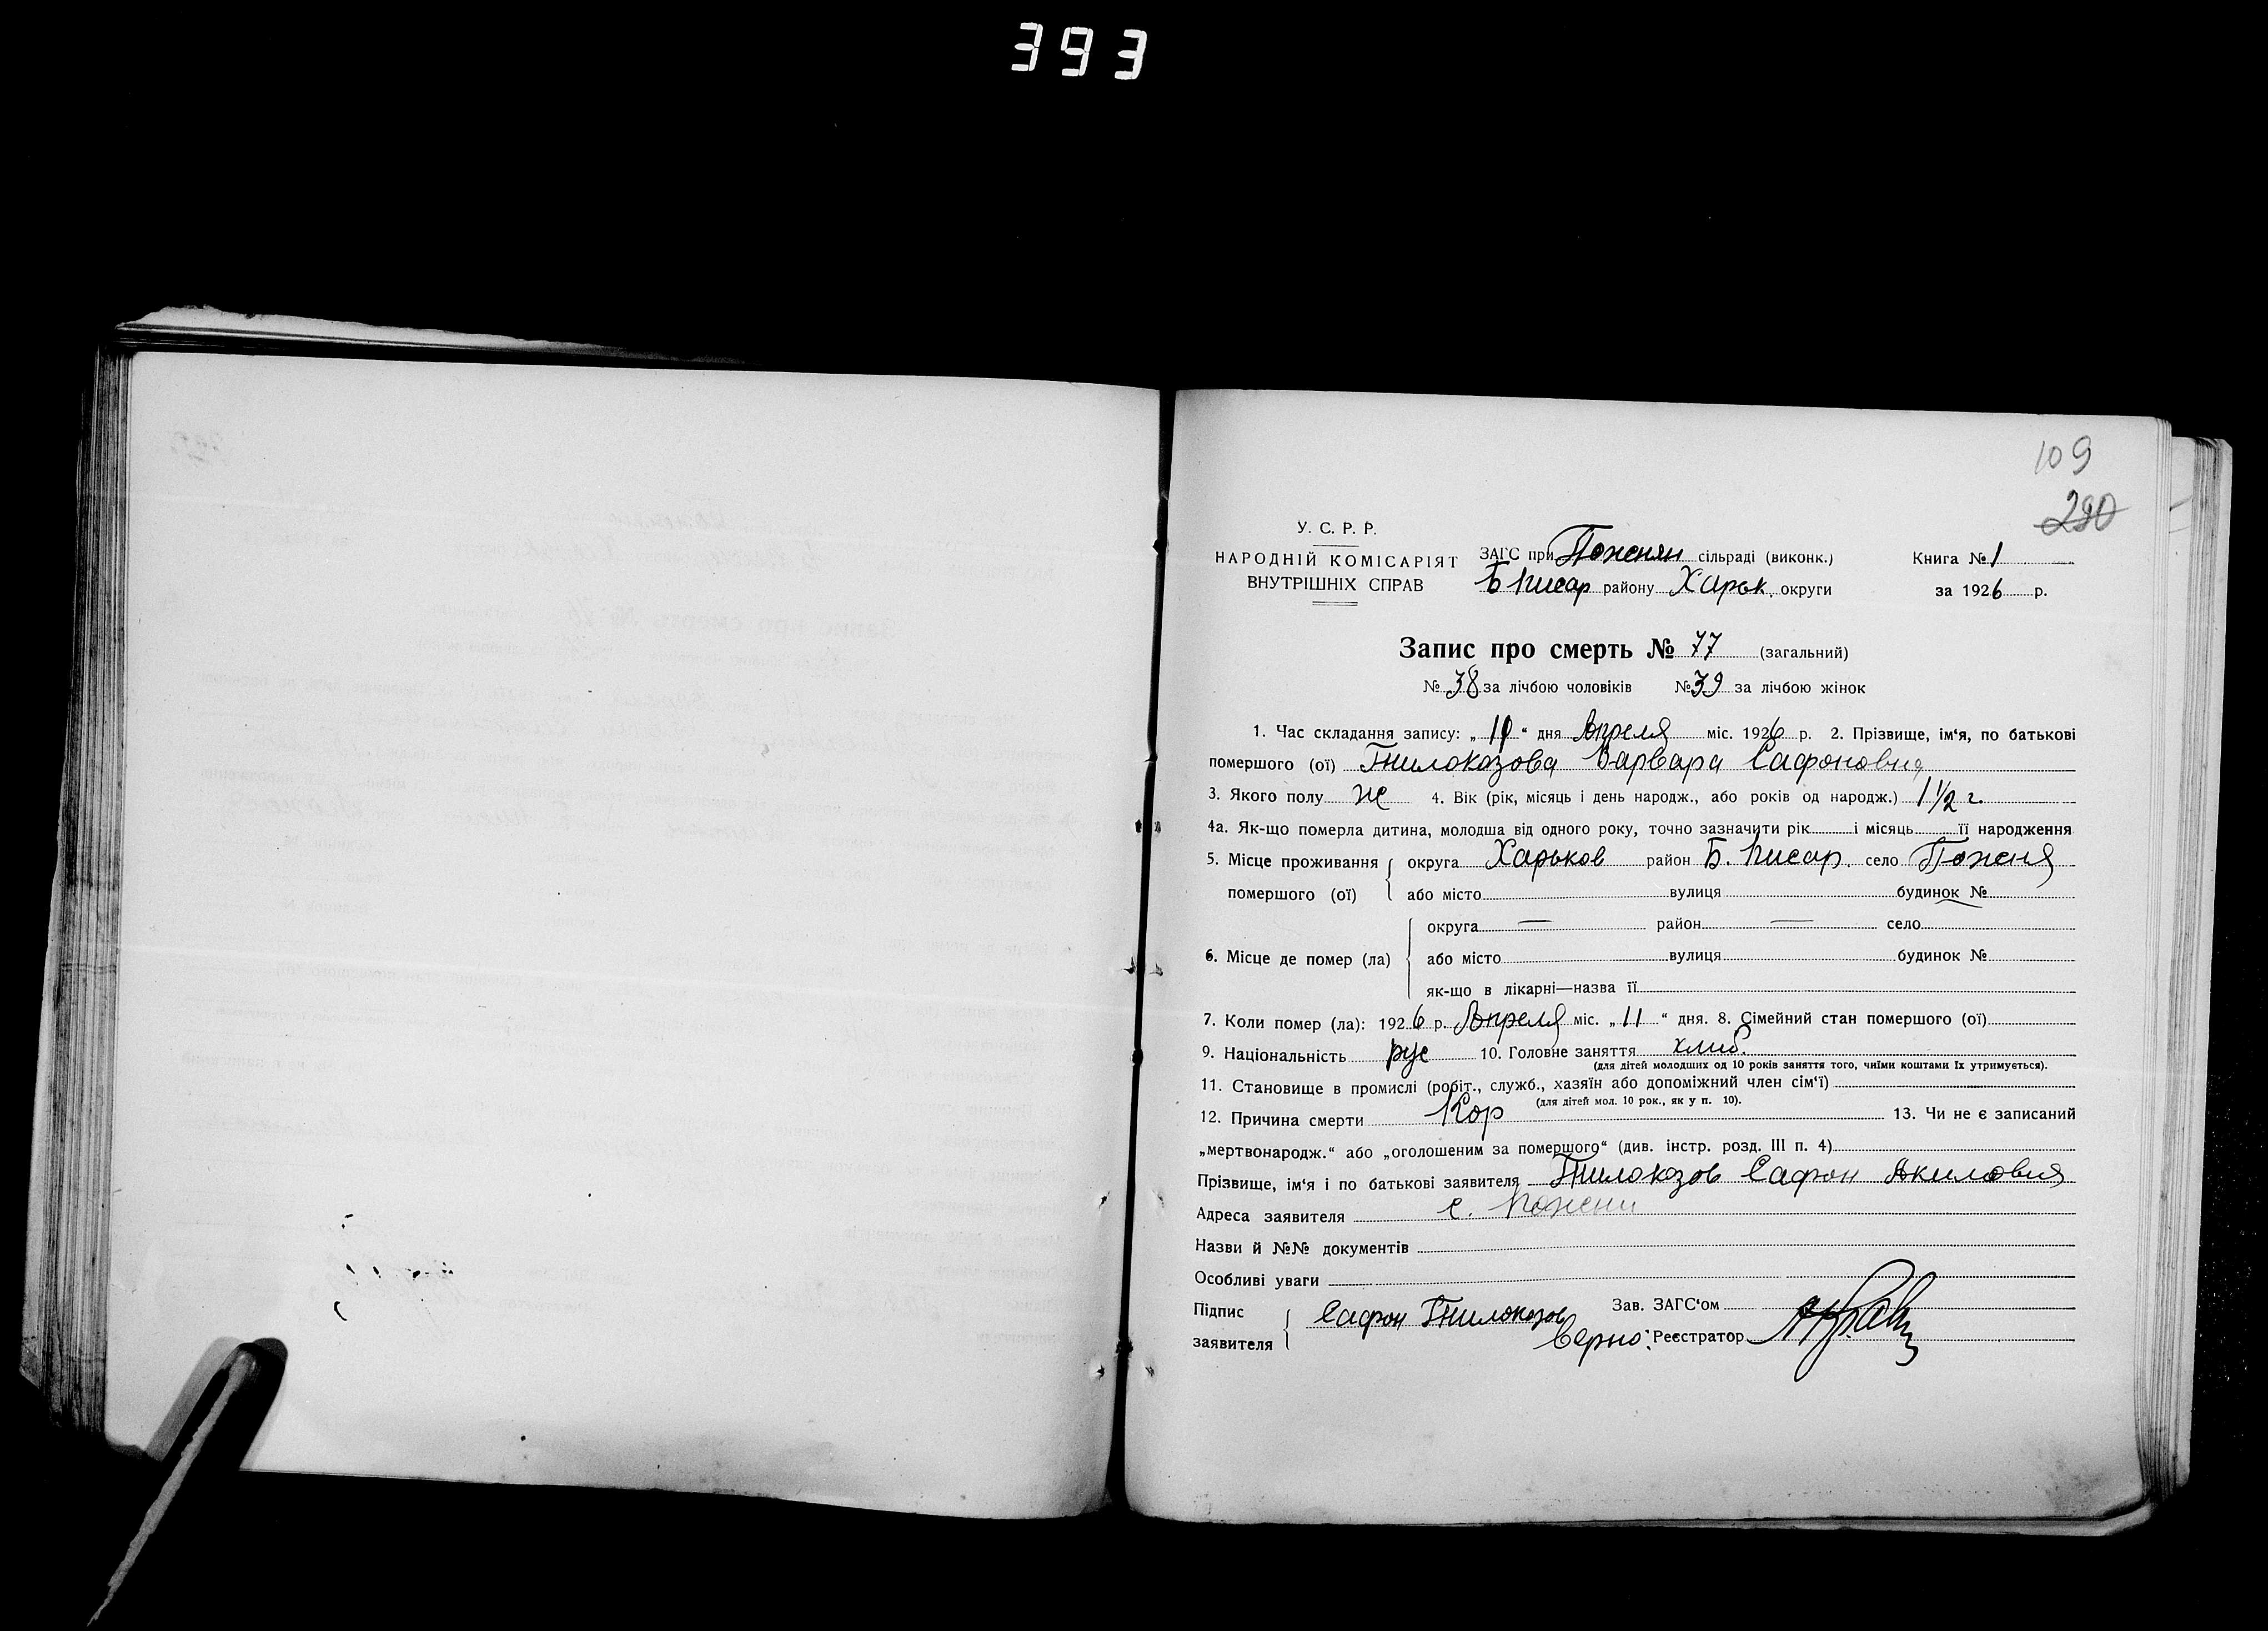 393
109
290
У. С. Р. Р.
НАРОДНІЙ КОМІСАРІЯТ
ВНУТРІШНІХ СПРАВ
ЗАГС при Поженян сільраді (виконк.)
Б Писар району Харьк. округи
Книга № 1
за 1926 р.
Запис про смерть № 77 (загальний)
№ 38 за лічбою чоловіків № 39 за лічбою жінок
1. Час складання запису: „ “ дня Апреля міс. 1926 р. 2. Прізвище, ім‘я, по батькові
помершого (ої) Гнилокозова Варвара Сафоновна
3. Якого полу ж 4. Вік (рік, місяць і день народж., або років од народж.) 1 1/2 г.
4а. Як-що померла дитина, молодша від одного року, точно зазначити рік і місяць її народження
5. Місце проживання округа Харьков район Б. Писар. село Поженя
помершого (ої) або місто вулиця будинок №
округа — район — село
6. Місце де помер (ла) або місто вулиця будинок №
як-що в лікарні—назва її
7. Коли помер (ла): 1926 р. Апреля міс. „11“ дня. 8. Сімейний стан помершого (ої)
9. Національність рус 10. Головне заняття хлиб.
(для дітей молодших од 10 років заняття того, чиїми коштами їх утримується).
11. Становище в промислі (робіт., служб., хазяїн або допоміжний член сім‘ї)
(для дітей мол. 10 рок., як у п. 10).
12. Причина смерти Кор 13. Чи не є записаний
„мертвонародж.“ або „оголошеним за помершого“ (див. інстр. розд. III п. 4)
Прізвище, ім‘я і по батькові заявителя Гнилокозов Сафон
Адреса заявителя с. Пожени
Назви й №№ документів
Особливі уваги
Підпис
заявителя
Сафон Гнилокозов
Зав. ЗАГС‘ом
Верно: Реєстратор